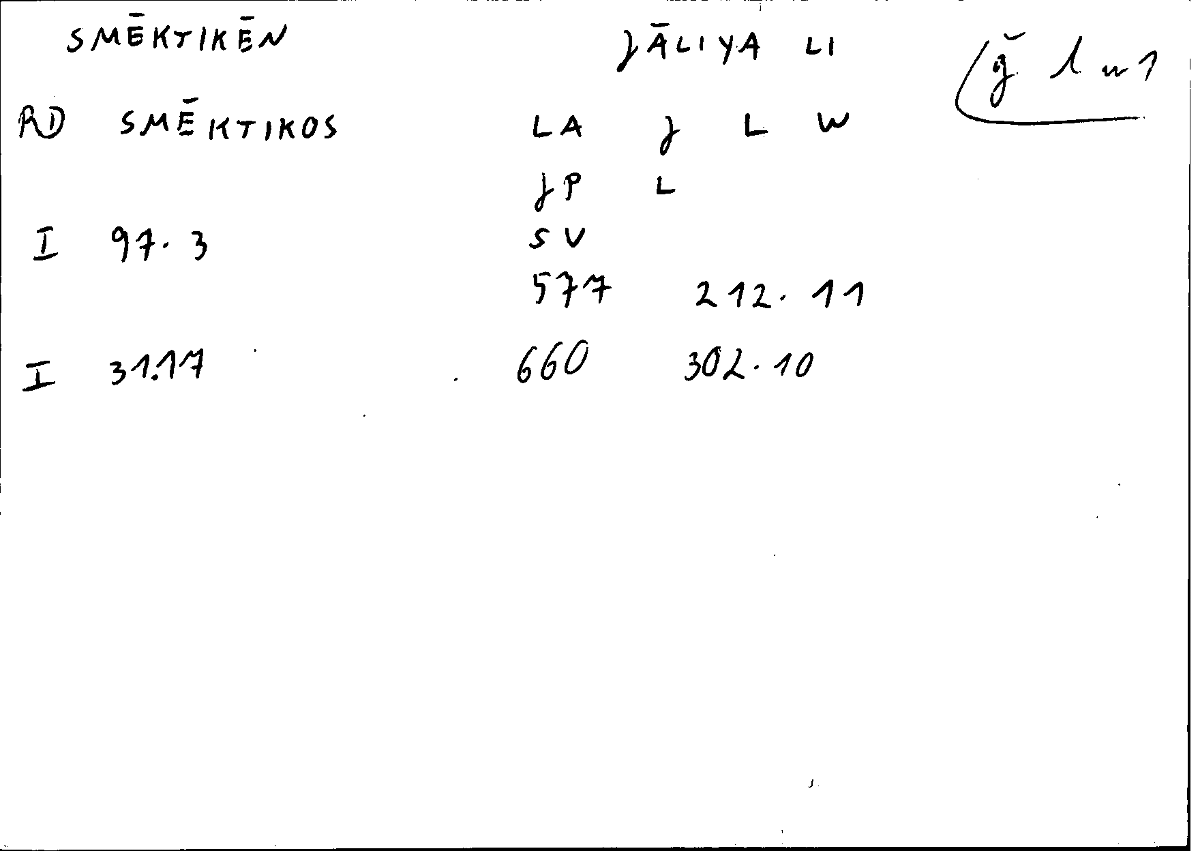 SMĒKTIKĒN JĀLIYA LI ǧ l w 1
RD SMĒKTIKOS LA J L W
JP L
I 97.3 SV
577 212.11
I 31.17 660 302.10